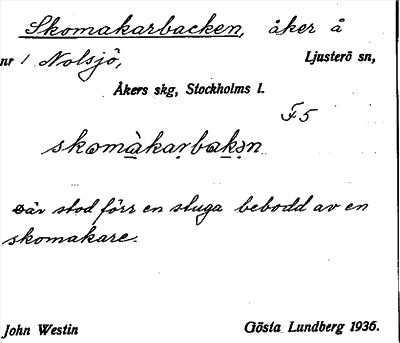 Skomakarbacken, åker å
nr 1 Nolsjö, Ljusterö sn,
Åkers skg, Stockholms l.
F5
skomàkarbakən
Där stod förr en stuga bebodd av en
skomakare.
John Westin Gösta Lundberg 1936.